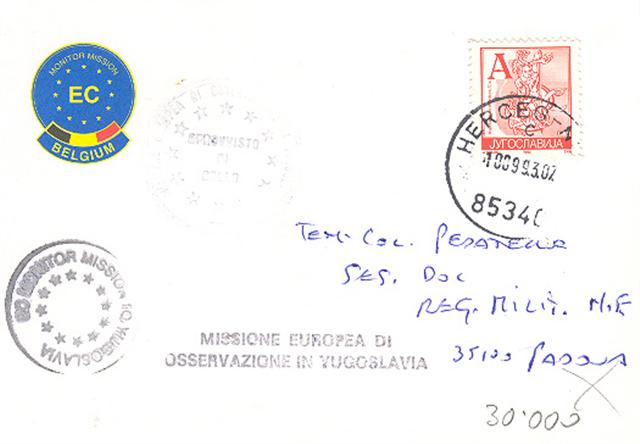 MONITOR MISSION
EC
BELGIUM
SPROVVISTO
DI
BOLLO
A
ЈУГОСЛАВИЈА
HERCEG
85340
TEN. COL.
SEZ. DOC
REG. MILIT. N.E
35100 PADOVA
EC MONITOR MISSION TO YUGOSLAVIA
MISSIONE EUROPEA DI
OSSERVAZIONE IN YUGOSLAVIA
30.000